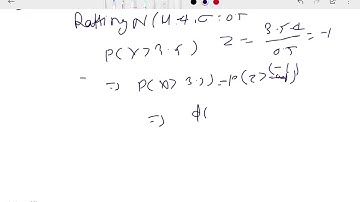 Rating N(µ 4, σ = 0.5
P(X>3.5) Z = 3.5-4 / 0.5 = -1
=> P(X>3.5) = P(Z>(-1))
=> φ(